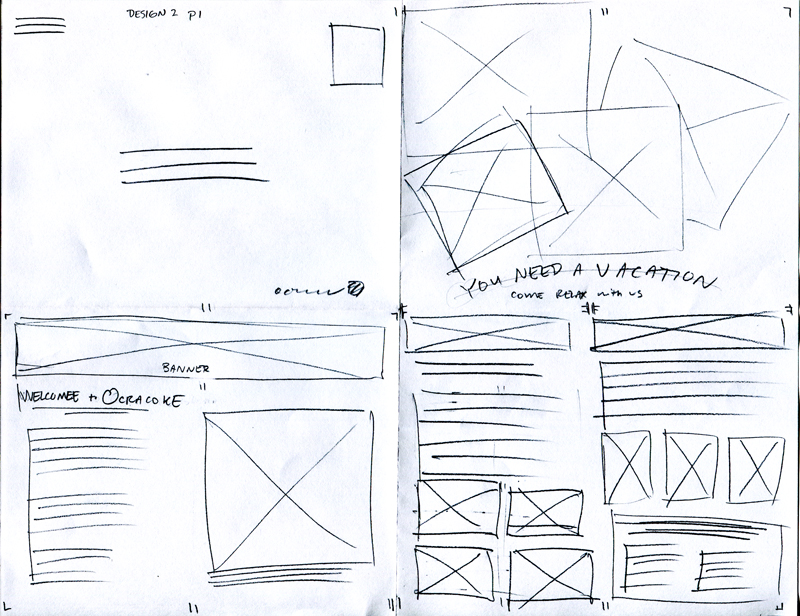 DESIGN 2 P1
YOU NEED A VACATION
COME RELAX with US
BANNER
WELCOMEE to OCRACOKE